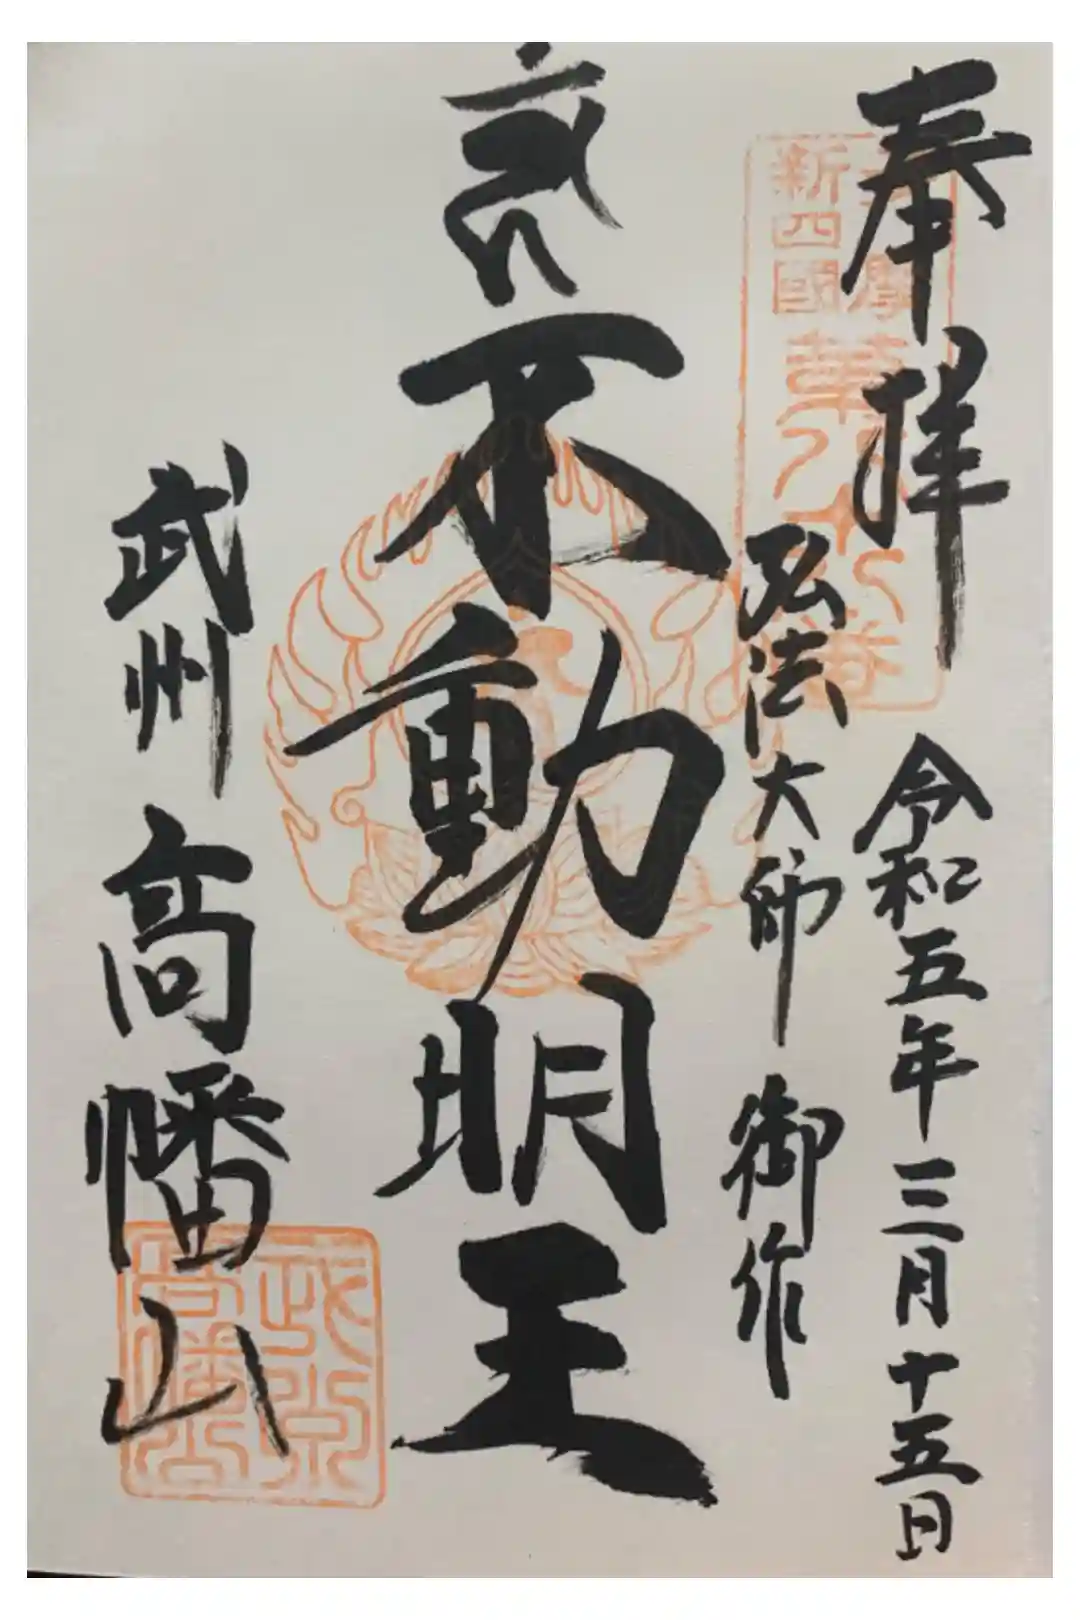 奉拝
令和五年三月十五日
新四國
弘法大師 御作
不動明王
武州 高幡山